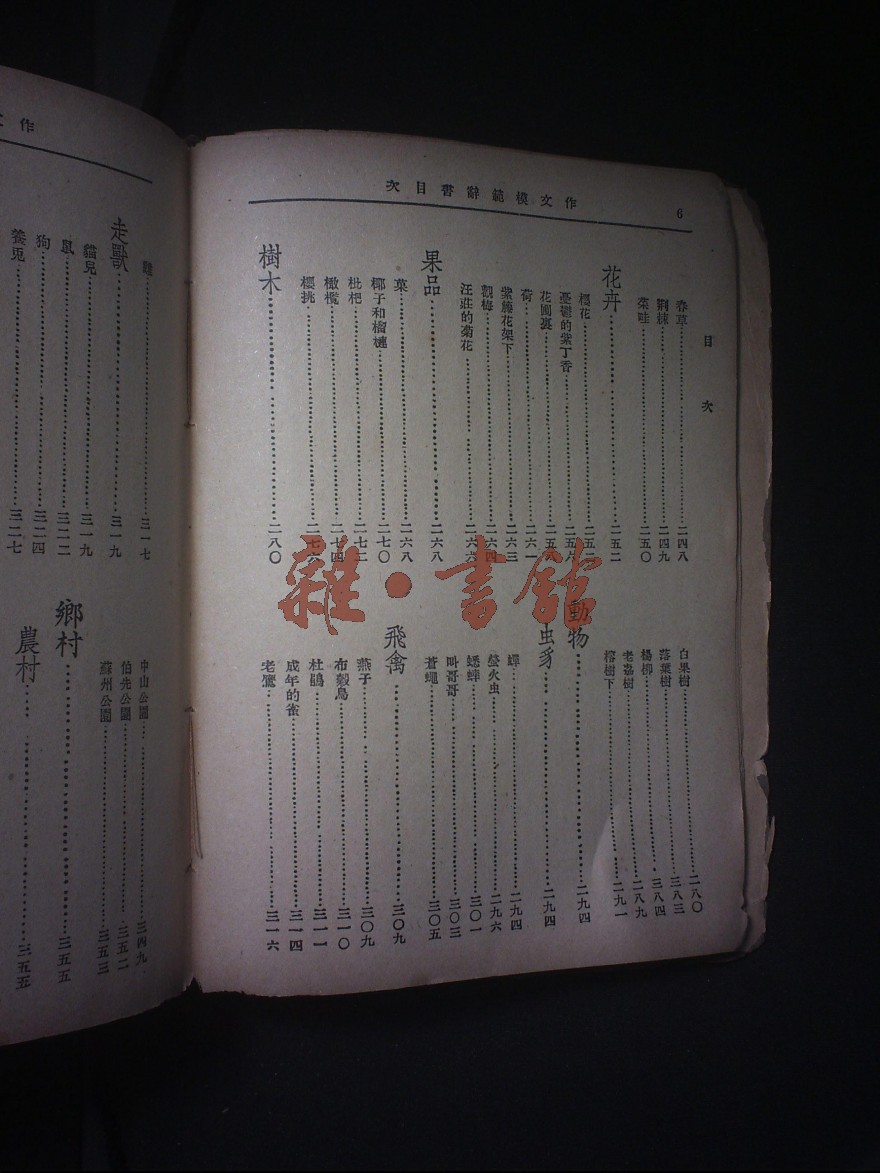 作文模範辭書目次
6
目次
春草 二四八
荆棘 二四九
菜畦 二五〇
花卉 二五二
櫻花 二五二
憂鬱的紫丁香 二五六
花園裏 二五八
荷 二六一
紫藤花架下 二六三
觀梅 二六四
汪莊的菊花 二六六
果品 二六八
菓 二六八
椰子和榴槤 二七〇
枇杷 二七三
橄欖 二七四
櫻挑 二七六
樹木 二八〇
白果樹 二八〇
落葉樹 三八三
楊柳 三八四
老嘉樹 二八九
榕樹下 二九一
動物 二九四
虫豸 二九四
蟬 二九四
螢火虫 二九六
蟋蟀 三〇一
叫哥哥 三〇三
蒼蠅 三〇五
飛禽 三〇九
燕子 三〇九
布穀鳥 三一〇
杜鵑 三一一
成年的雀 三一四
老鷹 三一六
作
三一七
走獸 三一九
貓兒 三一九
鼠 三二二
狗 三二四
養兎 三二七
中山公園 三四九
伯先公園 三五二
蘇州公園 三五三
鄉村 三五五
農村 三五五
雜·書館